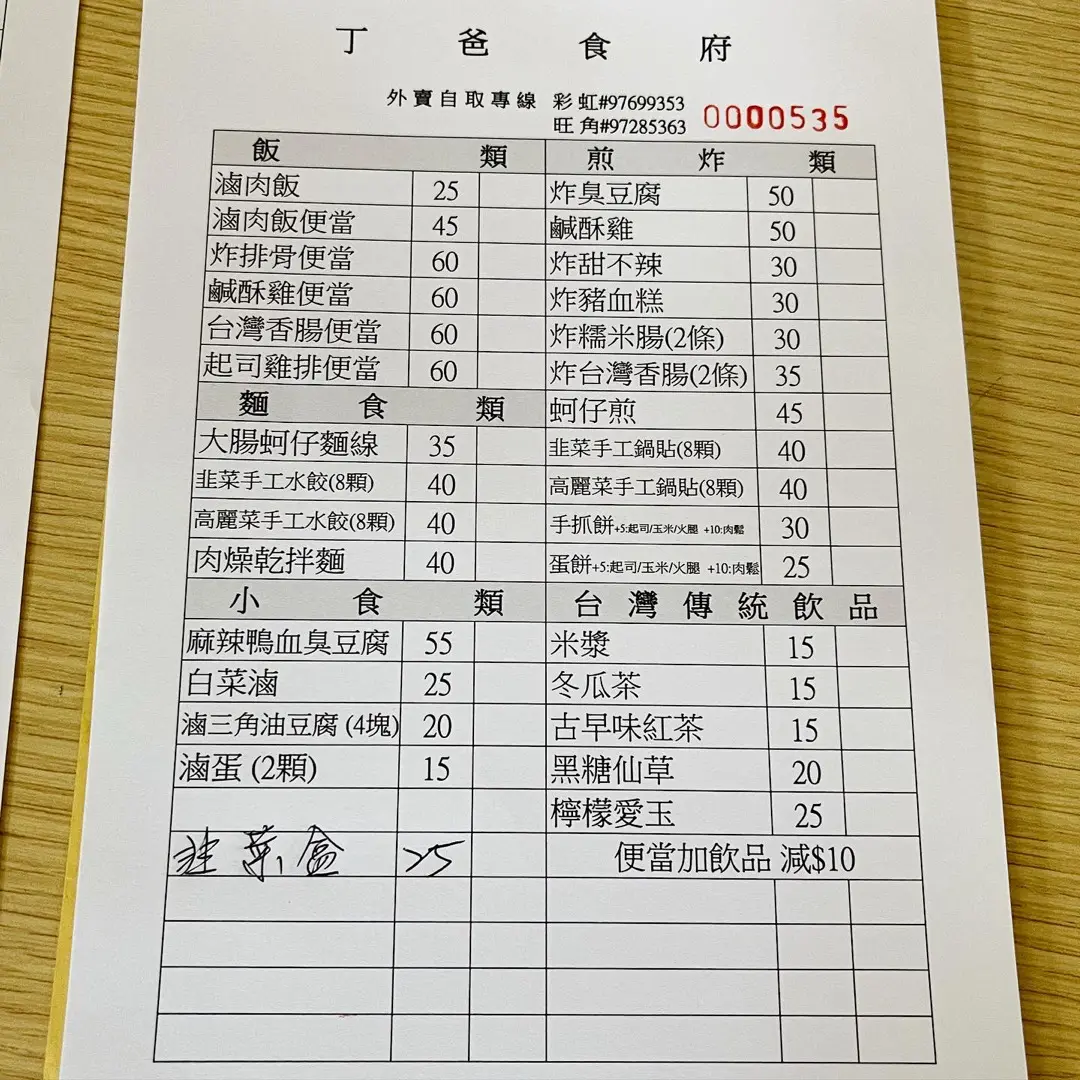 丁爸食府
外賣自取專線 彩虹#97699353
旺角#97285363
0000535
飯類
滷肉飯 25
滷肉飯便當 45
炸排骨便當 60
鹹酥雞便當 60
台灣香腸便當 60
起司雞排便當 60
麵食類
大腸蚵仔麵線 35
韭菜手工水餃(8顆) 40
高麗菜手工水餃(8顆) 40
肉燥乾拌麵 40
小食類
麻辣鴨血臭豆腐 55
白菜滷 25
滷三角油豆腐 (4塊) 20
滷蛋 (2顆) 15
韭菜盒 25
煎炸類
炸臭豆腐 50
鹹酥雞 50
炸甜不辣 30
炸豬血糕 30
炸糯米腸(2條) 30
炸台灣香腸(2條) 35
蚵仔煎 45
韭菜手工鍋貼(8顆) 40
高麗菜手工鍋貼(8顆) 40
手抓餅+5:起司/玉米/火腿 +10:肉鬆 30
蛋餅+5:起司/玉米/火腿 +10:肉鬆 25
台灣傳統飲品
米漿 15
冬瓜茶 15
古早味紅茶 15
黑糖仙草 20
檸檬愛玉 25
便當加飲品 減$10